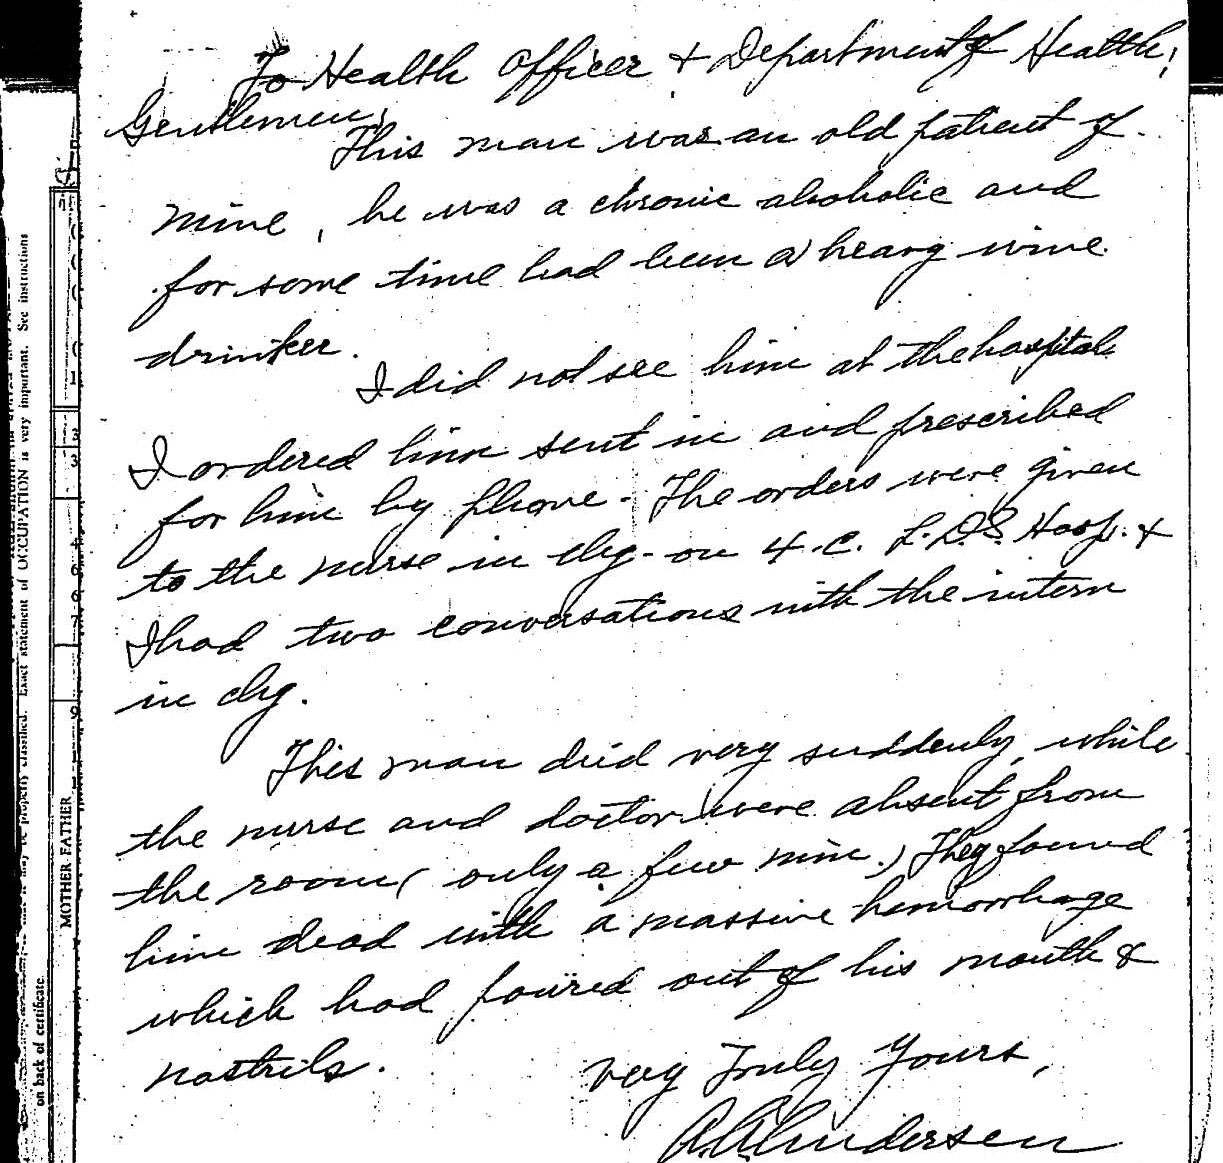 To Health Officer & Department of Health;
Gentlemen;
This man was an old patient of
mine, he was a chronic alcoholic and
for some time had been a heavy wine
drinker.
I did not see him at the hospital
I ordered him sent in and prescribed
for him by phone. The orders were given
to the nurse in chg. on 4.C. L.D.S. Hosp. &
I had two conversations with the intern
in chg.
This man died very suddenly, while
the nurse and doctor were absent from
the room (only a few min.) They found
him dead with a massive hemorrhage
which had poured out of his mouth &
nostrils.
Very Truly Yours,
Andersen
properly classified. Exact statement of OCCUPATION is very important. See instructions
on back of certificate.
MOTHER FATHER